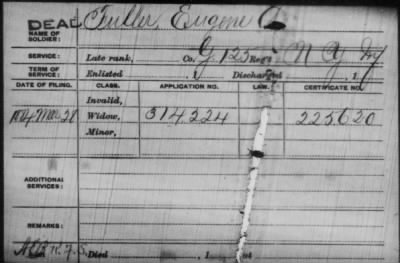 DEAD Fuller, Eugene C
NAME OF SOLDIER:
SERVICE: Late rank, Co. G, 125 Reg't N Y Inf
TERM OF SERVICE: Enlisted , 1 Discharged , 1
DATE OF FILING. CLASS. APPLICATION NO. LAW. CERTIFICATE NO.
Invalid,
Widow, 514,224 225620
Minor,
ADDITIONAL SERVICES:
REMARKS:
Died , 1 , at